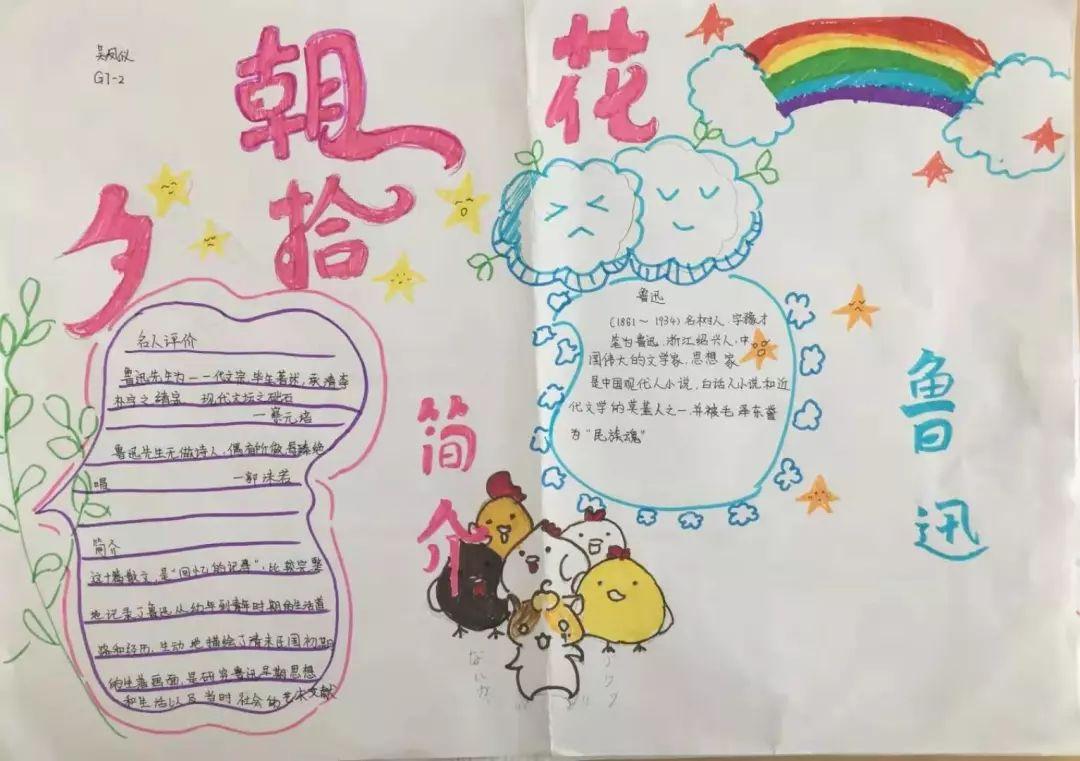 吴凤仪
G7-2
朝花
夕拾
简介
名人评价
鲁迅先生为一一代文宗,毕生著述,承清季
朴学之绪余 现代文坛之础石
—蔡元培
鲁迅先生无做诗人,偶有所做每臻绝
唱 —郭沫若
简介
这十篇散文,是"回忆的记事",比较完整
地记录了鲁迅从幼年到青年时期的生活道
路和经历,生动地描绘了清末民国初期
的生活画面,是研究鲁迅早期思想
和生活以及当时社会的艺术文献
鲁迅
(1881~1934)名树人,字豫才
笔为鲁迅.浙江绍兴人,中
国伟大的文学家,思想家
是中国现代人小说,白话人小说和近
代文学的奠基人之一,并被毛泽东誉
为"民族魂"
鲁迅